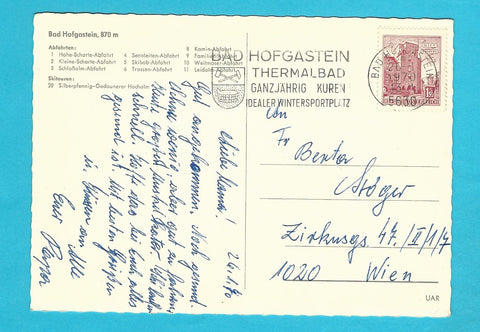 Bad Hofgastein, 870 m
Abfahrten:
1 Hohe-Scharte-Abfahrt
2 Kleine-Scharte-Abfahrt
3 Schloßalm-Abfahrt
4 Sennleiten-Abfahrt
5 Skibob-Abfahrt
6 Trassen-Abfahrt
8 Kamin-Abfahrt
9 Familien-Abfahrt
10 Weitmoser-Abfahrt
11 Leidalm-Abfahrt
Skitouren:
20 Silberpfennig-Gadaunerer Hochalm
BAD HOFGASTEIN
THERMALBAD
GANZJÄHRIG KUREN
IDEALER WINTERSPORTPLATZ
BAD HOFGASTEIN
5630
26.1.70
Mama!
Gut angekommen. Noch gesund.
wenig, aber gut
schnell. Hoffe das bei Euch alles
gesund ist. Mit besten Grüßen
an Alle
Euer
Fr Berta
Stöger
Zirkusg. 47/II/1/7
1020 Wien
UAR